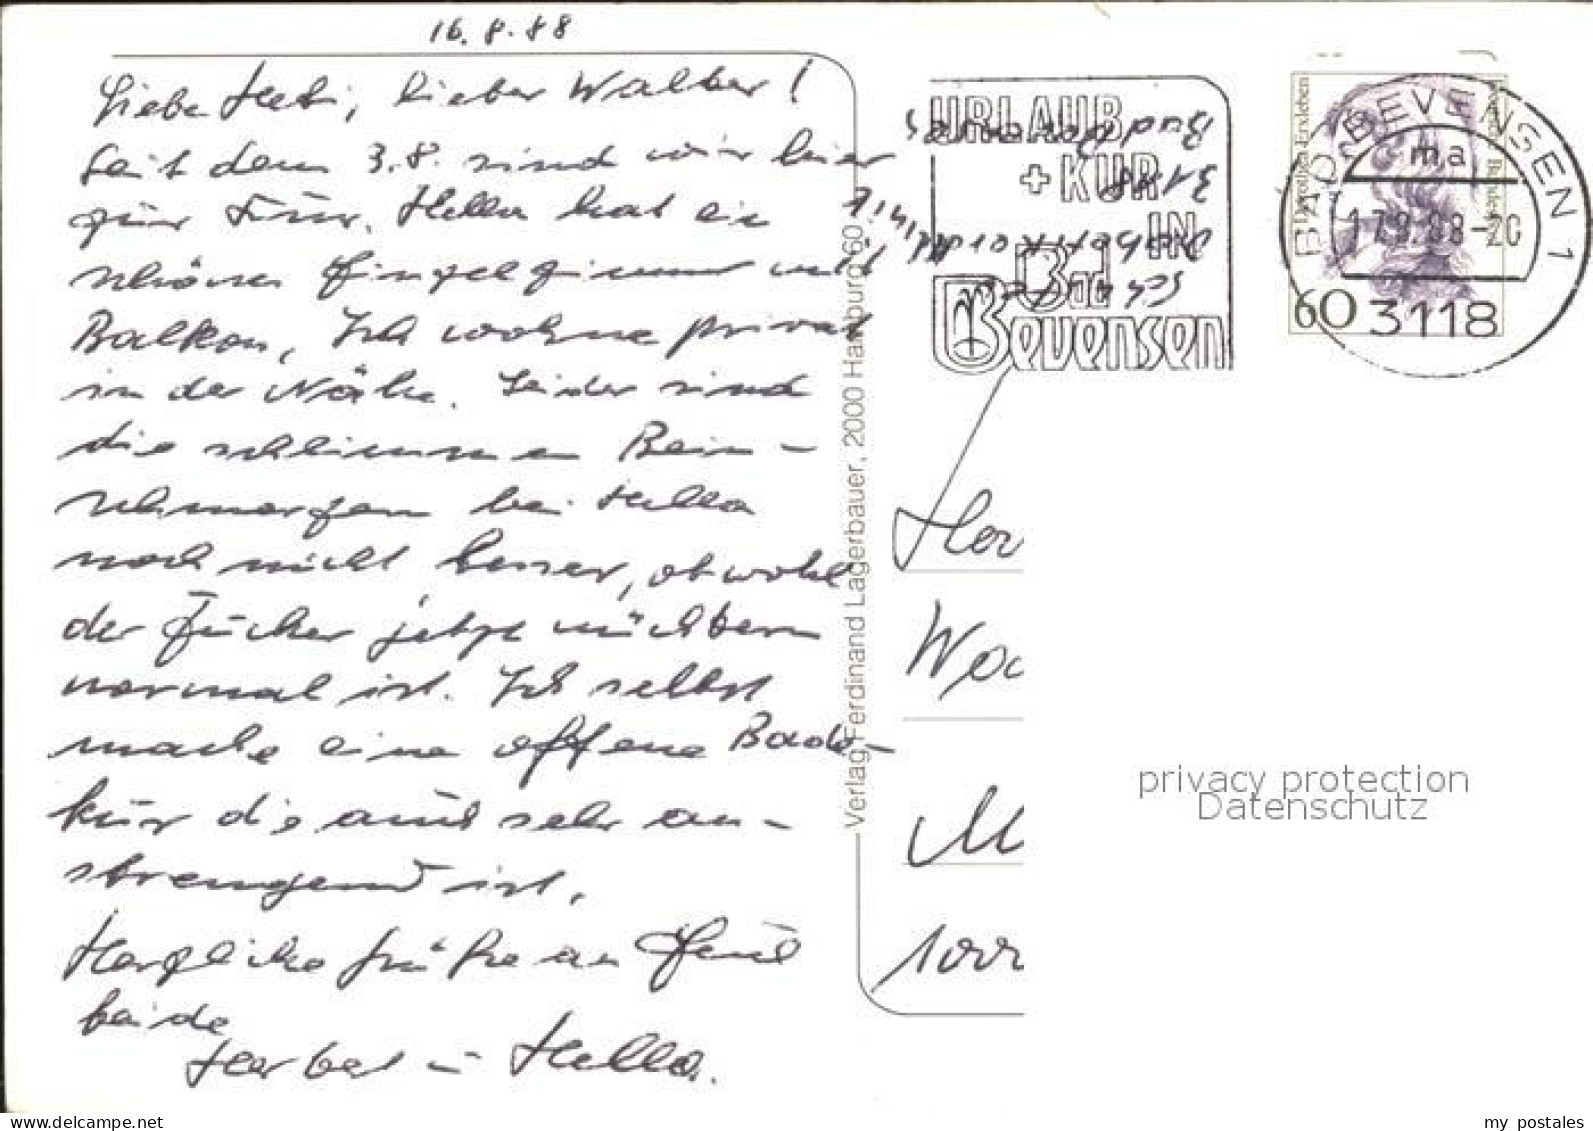 16.8.88
Liebe Heti, lieber Walter!
Seit dem 3.8. sind wir hier
zur Kur. Hella hat ein
schönes Einzelzimmer mit
Balkon, Ich wohne privat
in der Nähe. Leider sind
die schlimmen Bein-
schmerzen bei Hella
noch nicht besser, obwohl
der Zucker jetzt nüchtern
normal ist. Ich selbst
mache eine offene Bade-
kur die auch sehr an-
strengend ist.
Herzliche Grüße an Euch
beide
Herbert u Hella.
Verlag Ferdinand Lagerbauer, 2000 Hamburg 60
URLAUB
+ KUR
IN
Bad
Bevensen
3118
Dorothea Erxleben
60
BAD BEVENSEN 1
ma
17.8.88-20
3118
Her
Woc
M
1000
privacy protection
Datenschutz
hosting delcampe.net
my postales